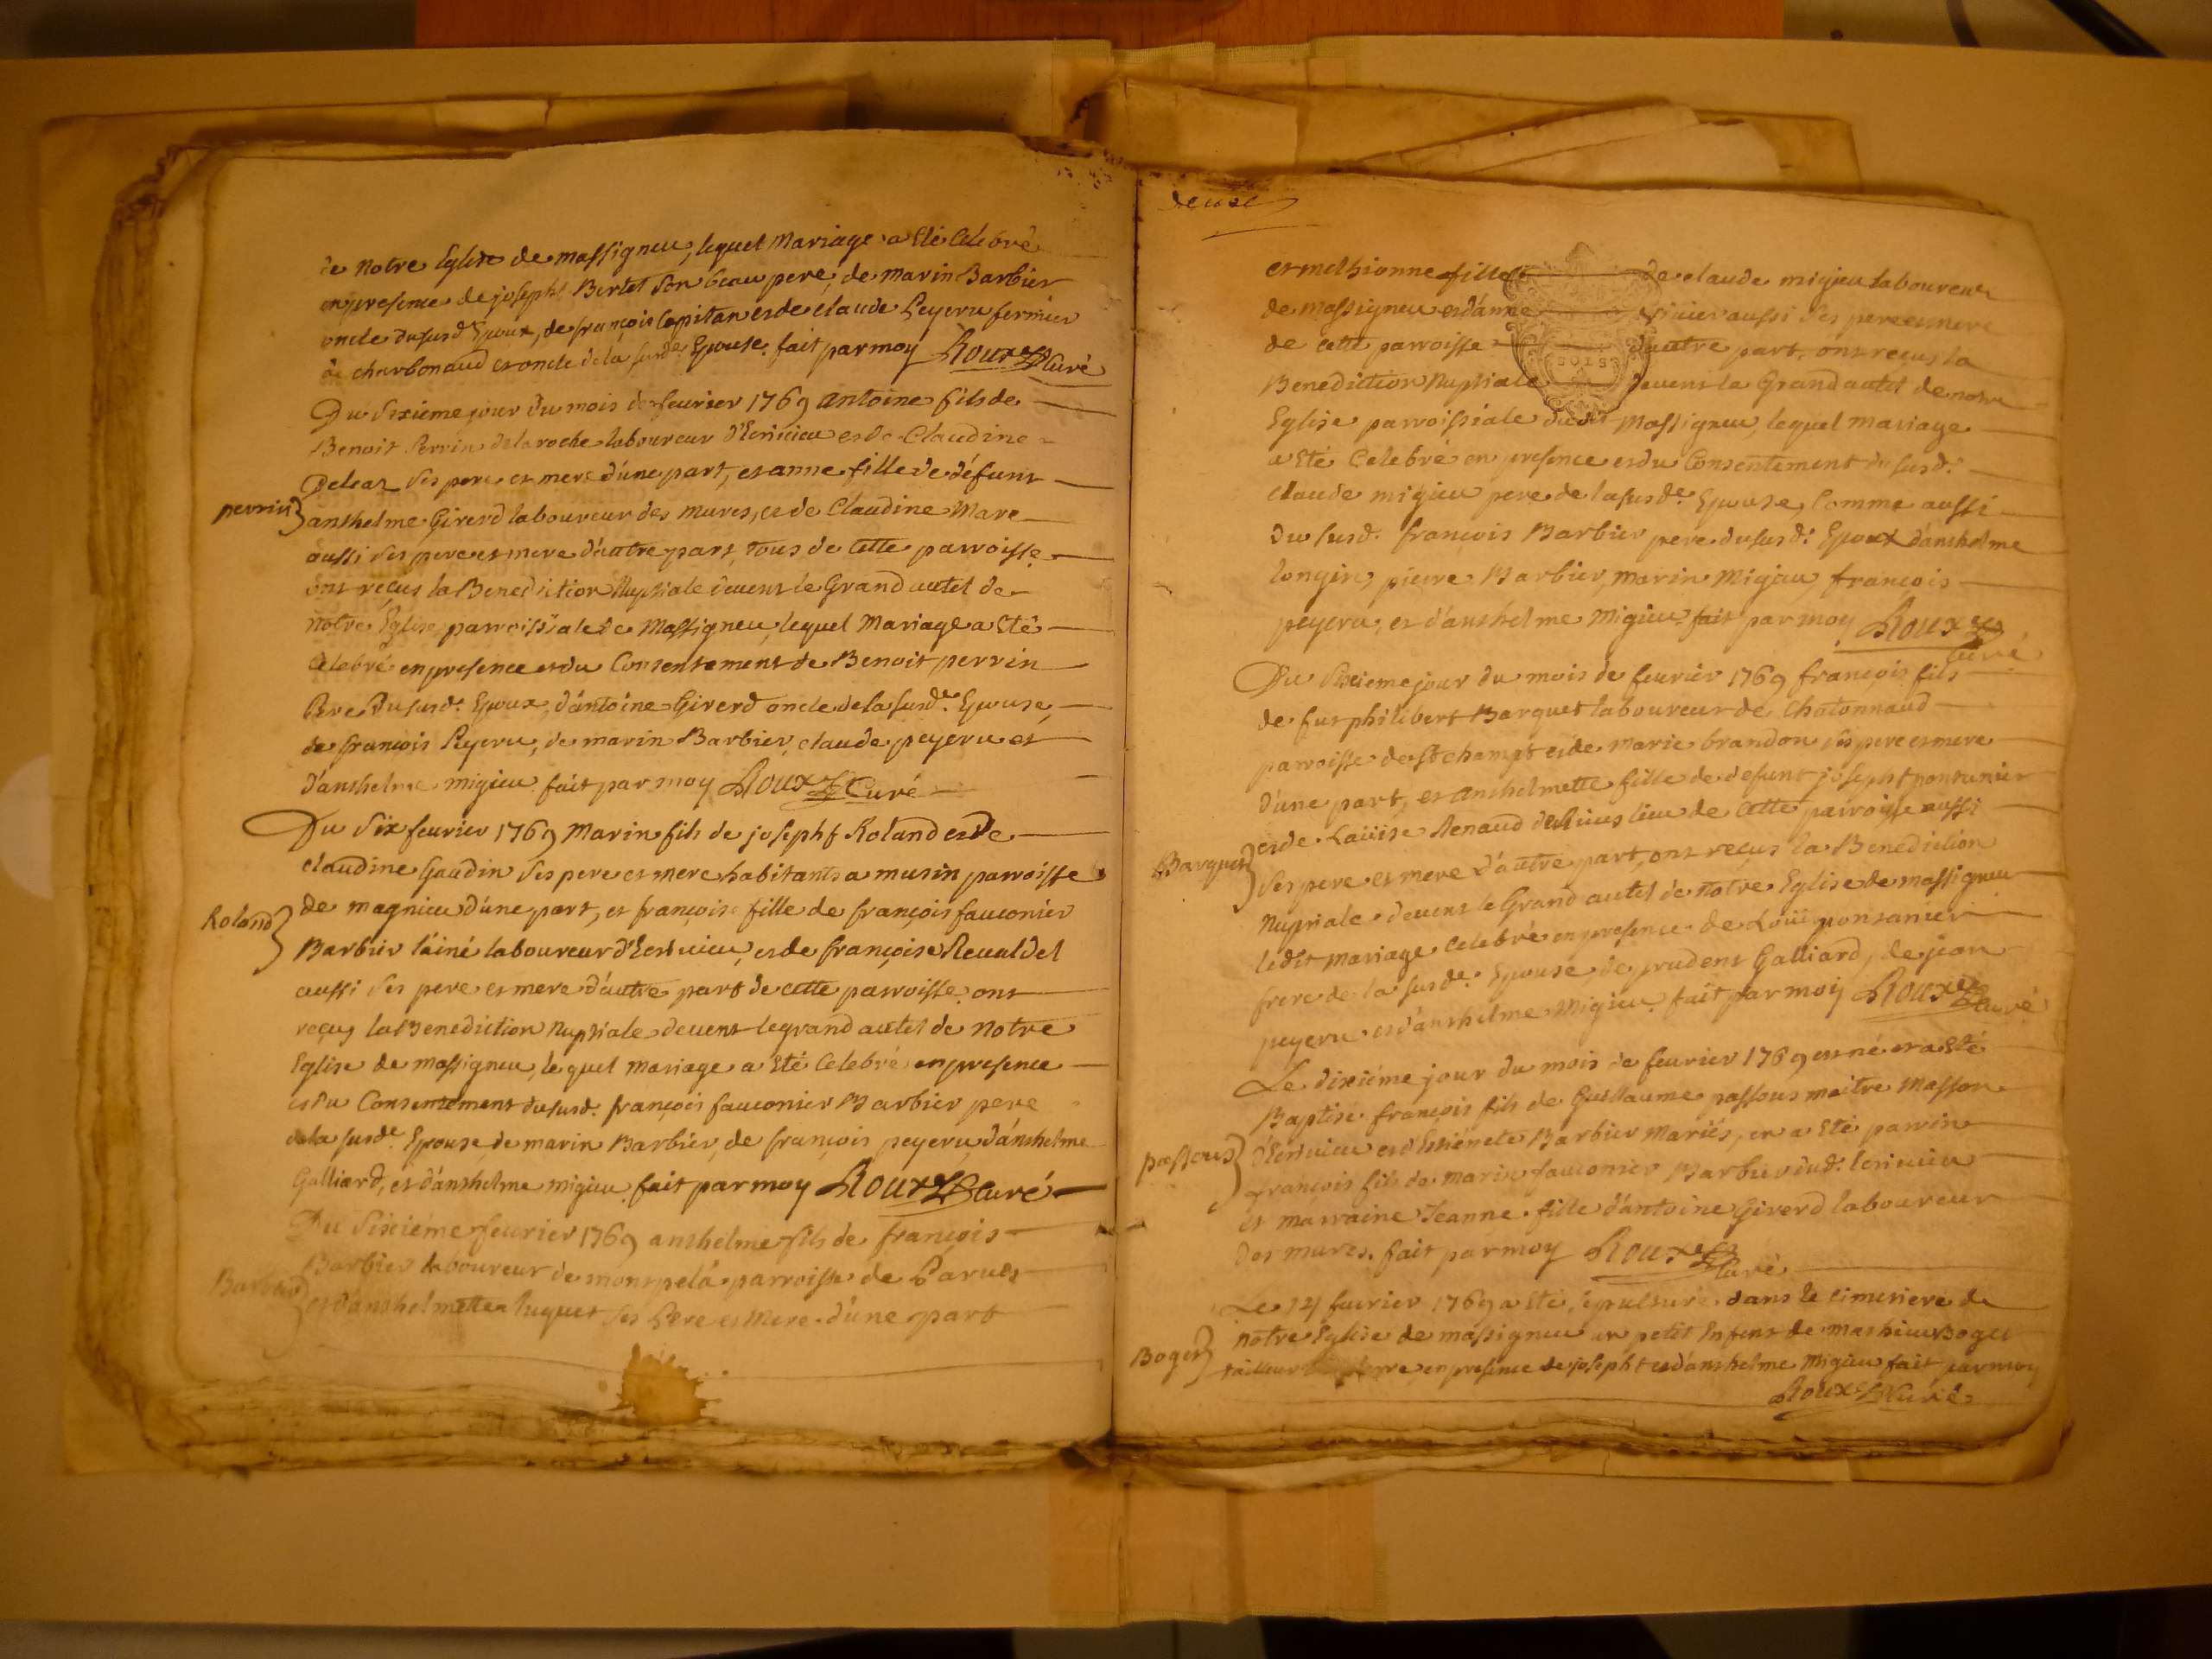 de notre Eglise de massigneu, lequel Mariage a Eté Celebré
en presence de joseph Bertet son beau pere, de marin Barbier
oncle dususd Epoux, de françois Capitan et de claude Peyeru fermier
de charbonaud et oncle de la susde Epouse. fait par moy Roux Curé
Du Sixieme jour du mois de feurier 1769 antoine fils de
Benoit Perrin dela roche laboureur d'Eсriuieu et de Claudine
ses pere et mere d'une part, et anne fille de défunt
perrin
anthelme Girerd laboureur des mures, et de Claudine Mare
aussi ses pere et mere d'autre part, tous de cette parroisse
ont reçus la Benediction Nuptiale deuent le Grand autel de
notre Eglise parroissiale de Massigneu, lequel Mariage a Eté
Celebré en presence et du Consentement de Benoit perrin
Pere Du susd. Epoux, d'antoine Girerd oncle de la susde. Epouse,
de françois Peyeru, de marin Barbier, claude peyeru et
d'anthelme migieu fait par moy Roux Curé
Du Six feurier 1769 Marin fils de joseph Roland et de
claudine Gaudin ses pere et mere habitants a musin parroisse
Roland
de magnieu d'une part, et françoise fille de françois fauconier
Barbier l'ainé laboureur d'Escriuieu, et de françoise Reualdel
aussi ses pere et mere d'autre part de cette parroisse. ont
reçus la Benediction Nuptiale deuent le grand autel de Notre
Eglise de massigneu, lequel mariage a Eté Celebré en presence
et du Consentement du susd. françois fauconier Barbier pere
de la susde Epouse, de marin Barbier, de françois peyeru, d'anthelme
Galliard, et d'anthelme migieu. fait par moy Roux Curé
Du Sixiéme feurier 1769 anthelme fils de françois
Barbier laboureur de montpela parroisse de Parues
Barbier
et d'anthelmette Luquet ses Pere et Mere d'une part
et methionne fille de claude migieu laboureur
de massigneu et d'anne aussi ses pere et mere
de cette parroisse d'autre part, ont reçus la
Benediction Nuptiale Deuent la Grand autel de notre
Eglise parroissiale dudit Massigneu, lequel mariage
a Eté Celebré en presence et du Consentement du susd.
claude migieu pere de la susde. Epouse, Comme aussi
Du susd. francois Barbier pere du susd. Epoux d'anthelme
longin, pierre Barbier, marin Migieu, françois
peyeru, et d'anthelme migieu fait par moy Roux
Curé
Du Sixieme jour du mois de feurier 1769 françois fils
de fut philibert Barquet laboureur de Chatonnaud
parroisse de St champt et de marie brandon ses pere et mere
d'une part, et anthelmette fille de defunt joseph pontanier
et de Loüise Renaud lieu de cette parroisse aussi
Barquet
ses pere et mere d'autre part, ont reçus la Benediction
Nuptiale deuent le Grand autel de notre Eglise de massigneu
ledit mariage Celebré en presence de Loüi pontanier
frere de la susde. Epouse, de prudent Galliard, de jean
peyeru et d'anthelme migieu. fait par moy Roux Curé
Le dixiéme jour du mois de feurier 1769 est né et a Eté
Baptisé françois fils de Guillaume passous maitre Masson
passous
d'Escriuieu et d'Estiénete Barbier Mariés, et a Eté parrin
françois fils de Marin fauconier Barbier dud. Escriuieu
et marraine Jeanne fille d'antoine Girerd laboureur
Des mures. fait par moy Roux Curé
Le 14 feurier 1769 a Eté sepulturé dans le cimetiere de
notre Eglise de massigneu un petit Enfent de mathieu Boget
Boget
tailleur en presence de joseph et d'anthelme Migieu fait par moy
Roux Curé